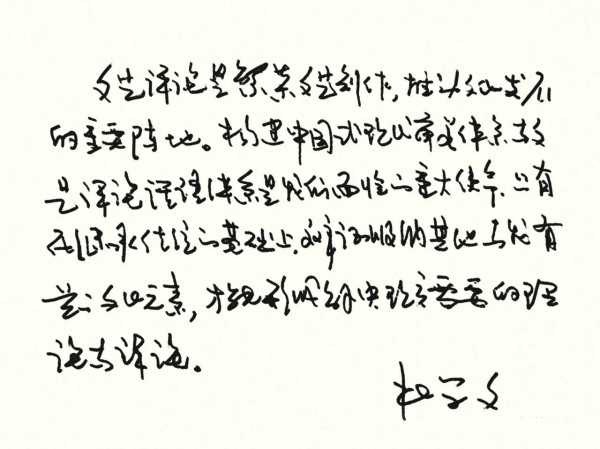 文艺评论是繁荣文艺创作,推动文化发展
的重要阵地。构建中国式现代审美体系
是评论话语体系是我们面临的重大使命。只有
在继承传统的基础上,吸收其他与我有
益的文化元素,才能形成解决现实需要的理
论与评论。
杜学文